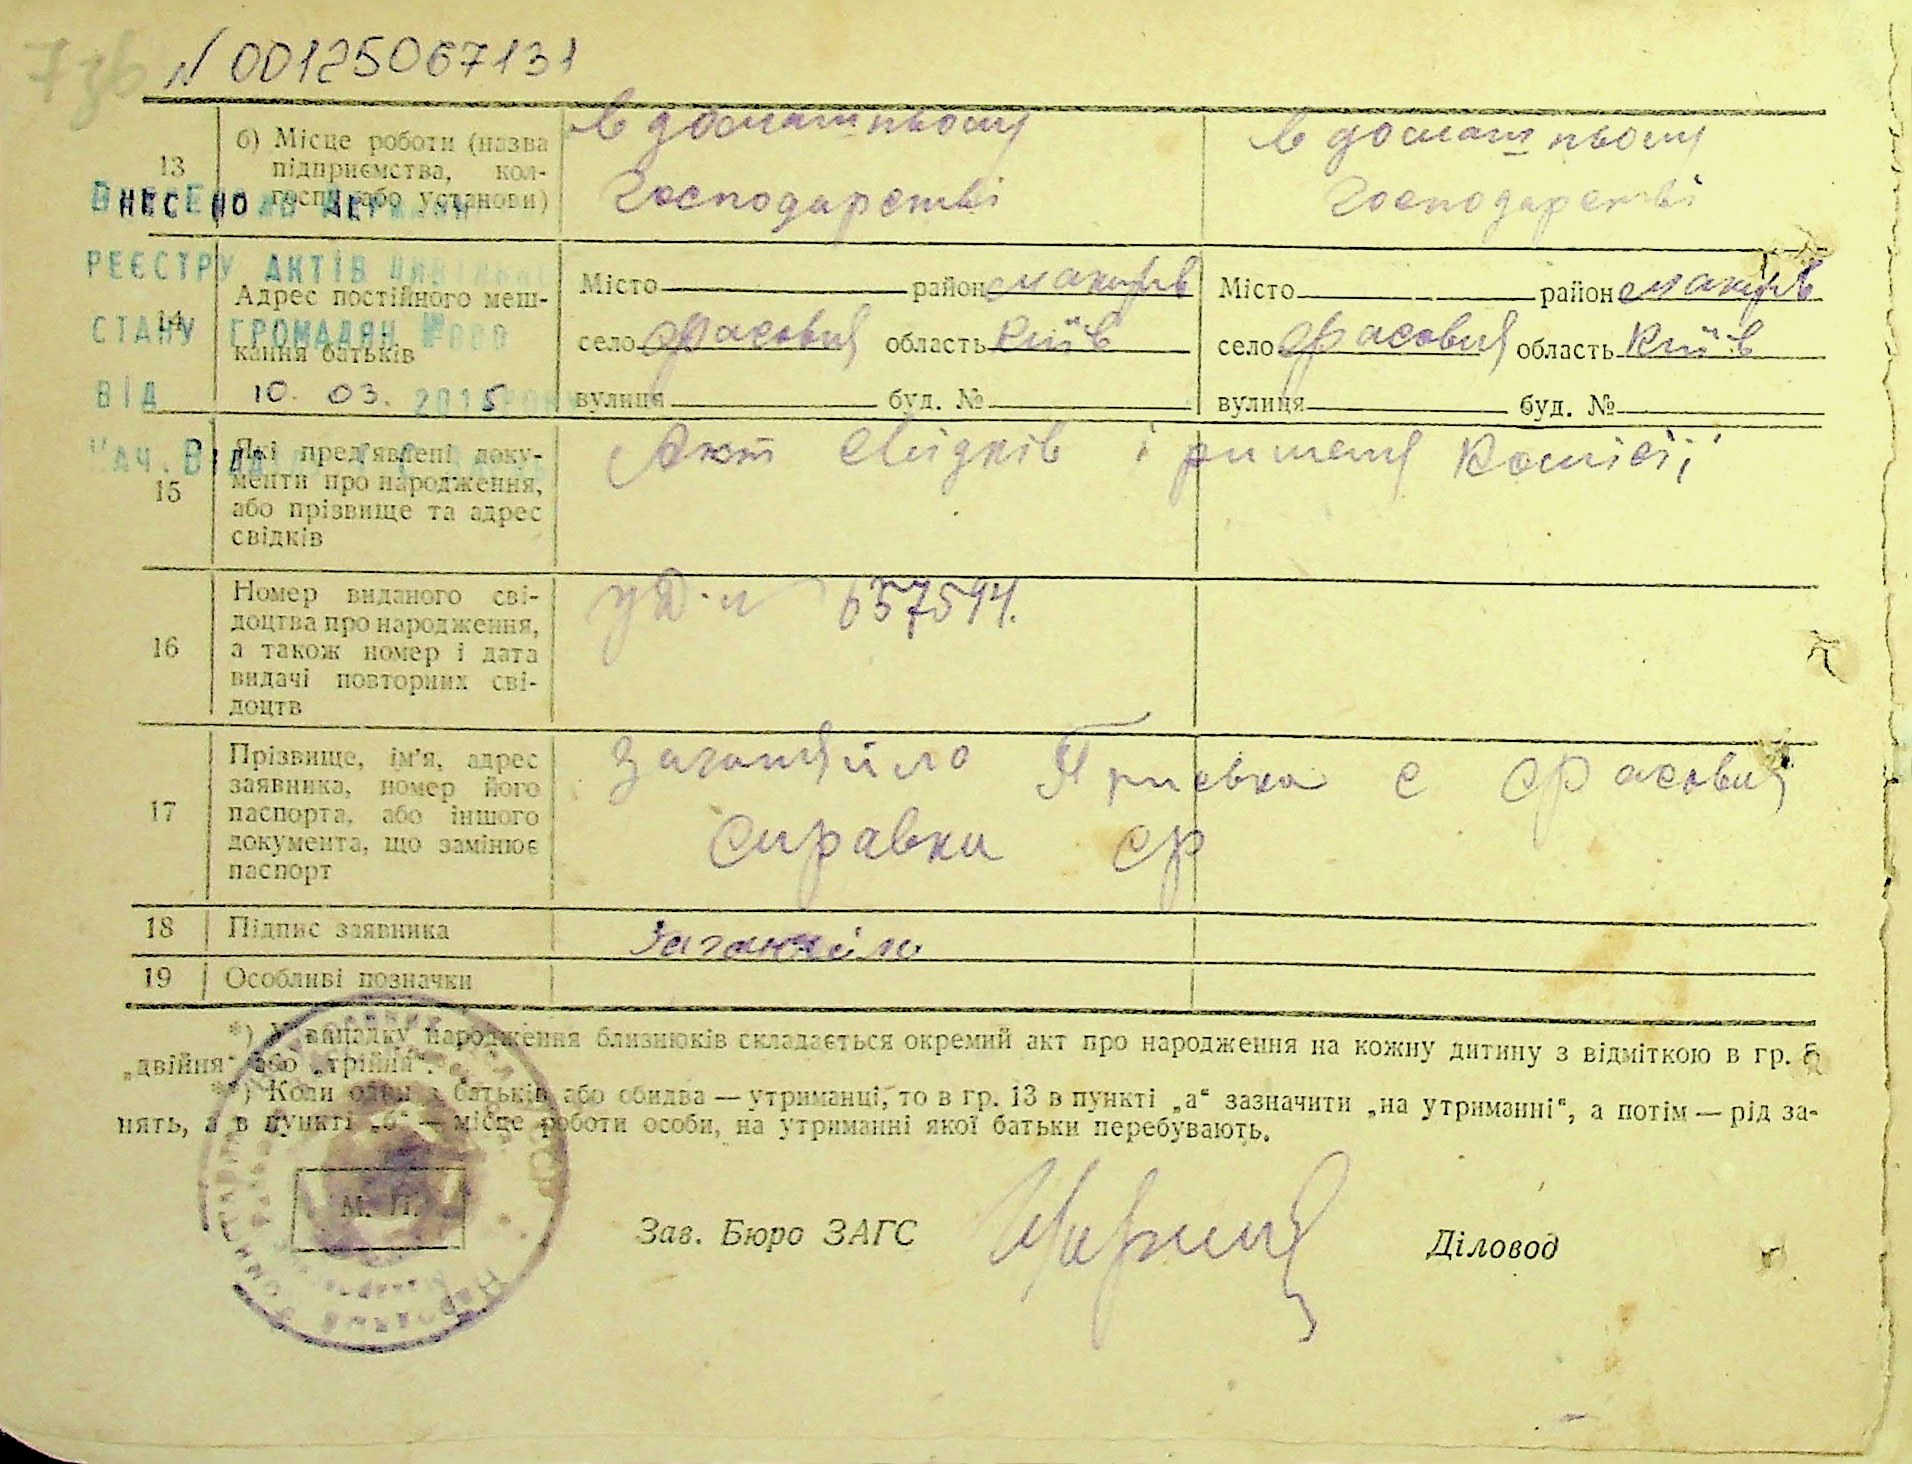 N 00125067131
13
б) Місце роботи (назва
підприємства, кол-
госпу або установи)
в домашньому
господарстві
в домашньому
господарстві
ВНЕСЕНО ДО ДЕРЖАВН
РЕЄСТРУ АКТІВ ЦИВІЛЬНО
СТАНУ ГРОМАДЯН №000
ВІД 10. 03. 2015 РОКУ
НАЧ. ВІДД
14
Адрес постійного меш-
кання батьків
Місто район Макарів
село Фасовая область Київ
вулиця буд. №
Місто район Макарів
село Фасовая область Київ
вулиця буд. №
15
Які пред'явлені доку-
менти про народження,
або прізвище та адрес
свідків
Акт свідків і ришення комісії
16
Номер виданого сві-
доцтва про народження,
а також номер і дата
видачі повторних сві-
доцтв
657594.
17
Прізвище, ім'я, адрес
заявника, номер його
паспорта, або іншого
документа, що замінює
паспорт
с Фасовая
справка ср
18
Підпис заявника
19
Особливі позначки
*) У випадку народження близнюків складається окремий акт про народження на кожну дитину з відміткою в гр. 5
„двійня“ або „трійня“.
**) Коли один з батьків або обидва — утриманці, то в гр. 13 в пункті „а“ зазначити „на утриманні“, а потім — рід за-
нять, а в пункті „б“ — місце роботи особи, на утриманні якої батьки перебувають.
М. П.
Зав. Бюро ЗАГС
Діловод